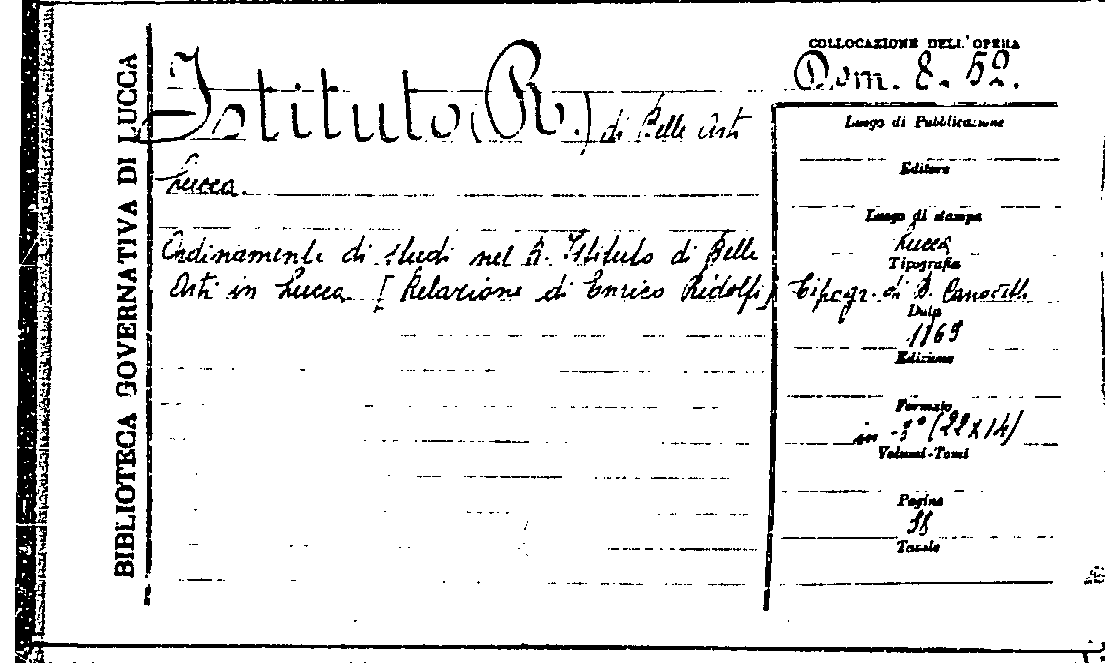 BIBLIOTECA GOVERNATIVA DI LUCCA
Istituto (R.) di Belle Arti
Lucca.
Ordinamento di studi nel R. Istituto di Belle
Arti in Lucca [Relazione di Enrico Ridolfi]
COLLOCAZIONE DELL'OPERA
Dom. 8. 52.
Luogo di Pubblicazione
Editore
Luogo di stampa
Lucca
Tipografia
Tipogr. di B. Canovetti
Data
Edizione
Formato
in -8° (22x14)
Volumi-Tomi
Pagine
Tavole